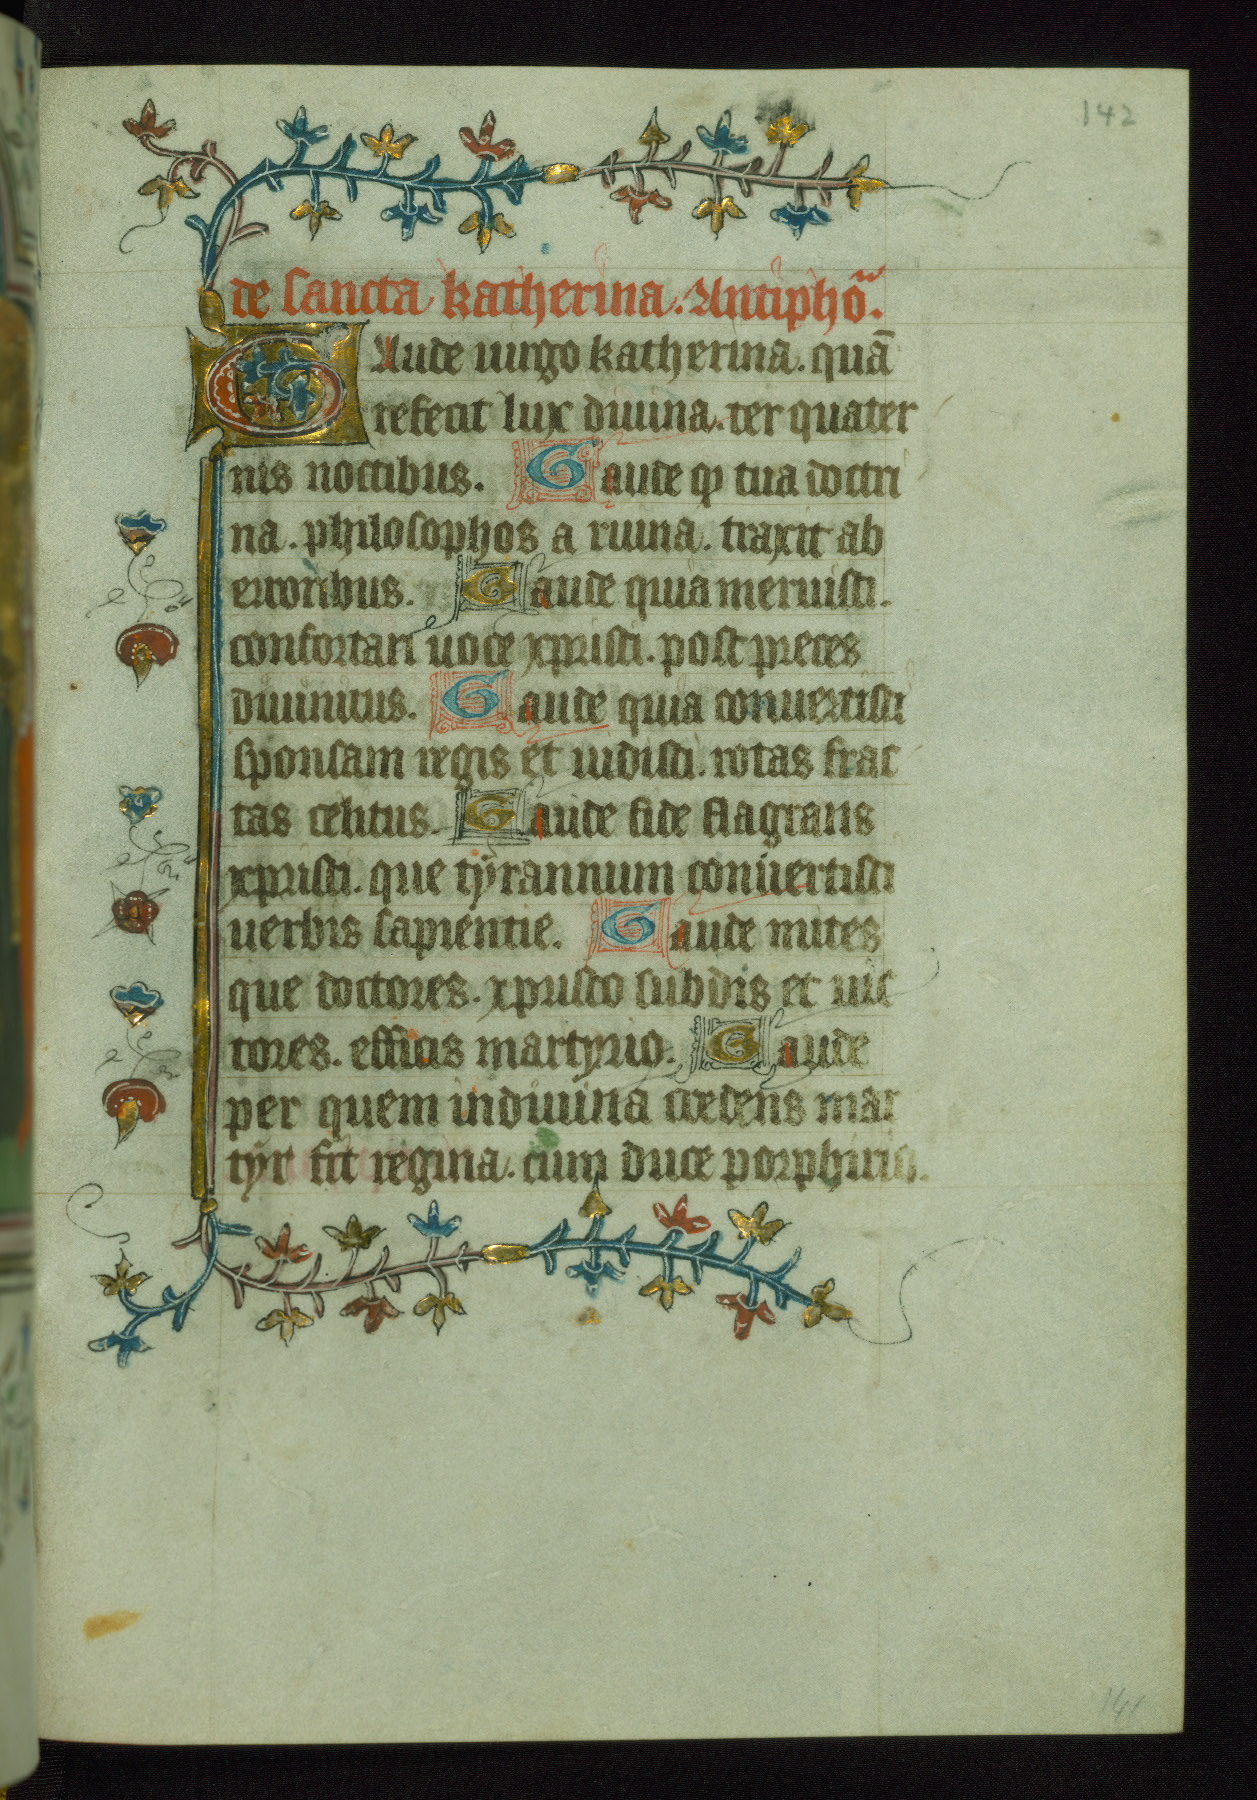 142
de sancta katherina. Antipho͞.
GAude uirgo katherina. quā
refecit lux diuina. ter quater
nis noctibus. Gaude ꝙ tua doctri
na. philosophos a ruina. traxit ab
erroribus. Gaude quia meruisti.
confortari uoce xpristi. post preces
diuinitus. Gaude quia conuertisti
sponsam regis et uidisti. rotas frac
tas celitus. Gaude fide flagrans
xpristi. que tyrannum conuertisti
uerbis sapientie. Gaude mites
que doctores. xpristo subdis et uic
tores. efficis martyrio. Gaude
per quem indiuina credens mar
tyr fit regina. cum duce porphirio.
141